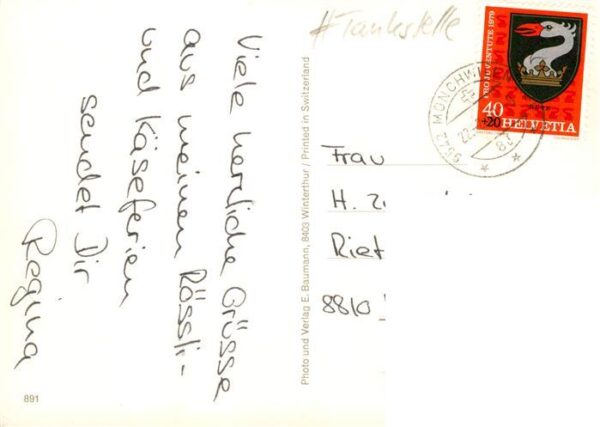 Viele herrliche Grüsse
aus meinen Rössli-
und Käseferien
sendet Dir
Regina
891
Photo und Verlag E. Baumann, 8403 Winterthur / Printed in Switzerland
#Tankstelle
PRO JUVENTUTE 1979
40
+20 HELVETIA
9542 MÜNCHWI
Frau
H.
Riet
8810